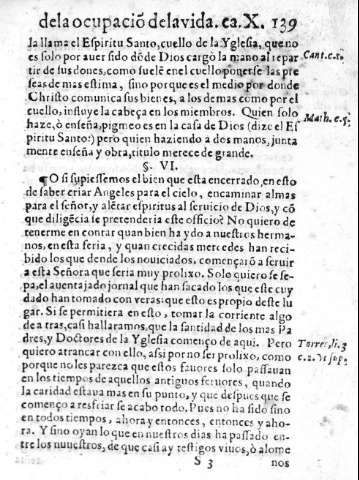 de la ocupaciõ de la vida. ca. X. 139
la llama el Espiritu Santo, cuello de la Yglesia, que no
es solo por auer sido dõde Dios cargò la mano al repar
tir de sus dones, como suelẽ en el cuello ponerse las pre
seas de mas estima, sino porque es el medio por donde
Christo comunica sus bienes, a los demas como por el
cuello, influye la cabeça en los miembros. Quien solo
haze, ò enseña, pigmeo es en la casa de Dios (dize el Es
piritu Santo:) pero quien haziendo a dos manos, junta
mente enseña y obra, titulo merece de grande.
Cant. c. 1.
Math. c. 5.
§. VI.
¶O si supiessemos el bien que esta encerrado, en esto
de saber criar Angeles para el cielo, encaminar almas
para el señor, y alẽtar espiritus al seruicio de Dios, y cõ
que diligẽcia se pretenderia este officio? No quiero de
tenerme en contar quan bien ha ydo a nuestros herma-
nos, en esta feria, y quan crecidas mercedes han reci-
bido los que dende los nouiciados, començarõ a seruir
a esta Señora que seria muy prolixo. Solo quiero se se-
pa, el auentajado jornal que han sacado los que este cuy
dado han tomado con veras: que esto es propio deste lu
gar. Si se permitiera en esto, tomar la corriente algo
de atras, casi hallaramos, que la santidad de los mas Pa
dres, y Doctores de la Yglesia començo de aqui. Pero
quiero atrancar con ello, assi por no ser prolixo, como
porque no les parezca que estos fauores solo passauan
en los tiempos de aquellos antiguos feruores, quando
la caridad estaua mas en su punto, y que despues que se
començo a resfriar se acabo todo. Pues no ha sido sino
en todos tiempos, ahora y entonces, entonces y aho-
ra. Y sino oyan lo que en nuestros dias ha passado en-
tre los nuestros, de que casi ay testigos viuos, ò alome
Torres, li. 3
S 3 nos